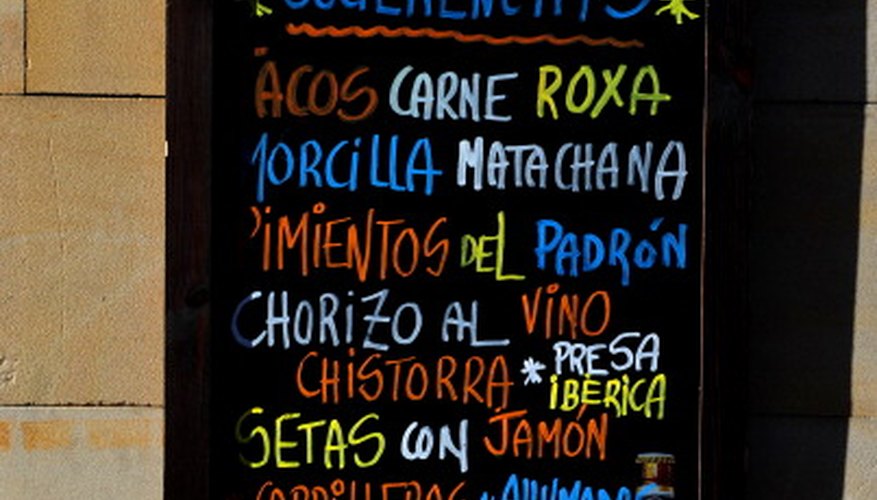 SUGERENCIAS
TACOS CARNE ROXA
MORCILLA MATACHANA
PIMIENTOS DEL PADRÓN
CHORIZO AL VINO
CHISTORRA * PRESA IBÉRICA
SETAS CON JAMÓN